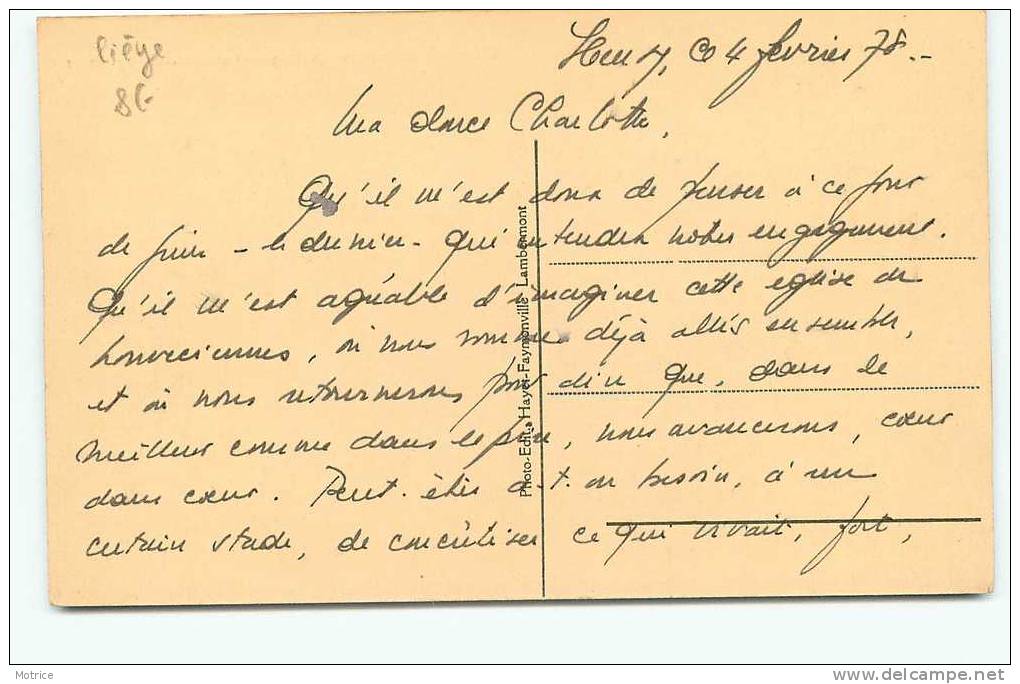 Liège
86
Heusy, ce 4 février 78.-
Ma douce Charlotte,
Qu'il m'est doux de penser à ce jour
de juin - le dernier - qui entendra notre engagement.
Qu'il m'est agréable d'imaginer cette église de
, où nous sommes déjà allés ensemble,
et où nous retournerons pour dire que, dans le
meilleur comme dans le pire, nous avancerons, cœur
dans cœur. Peut-être a-t-on besoin, à un
certain stade, de concrétiser ce qui vivait, fort,
Photo-Edit. Hayet-Faymonville Lambermont
Motrice
www.delcampe.net